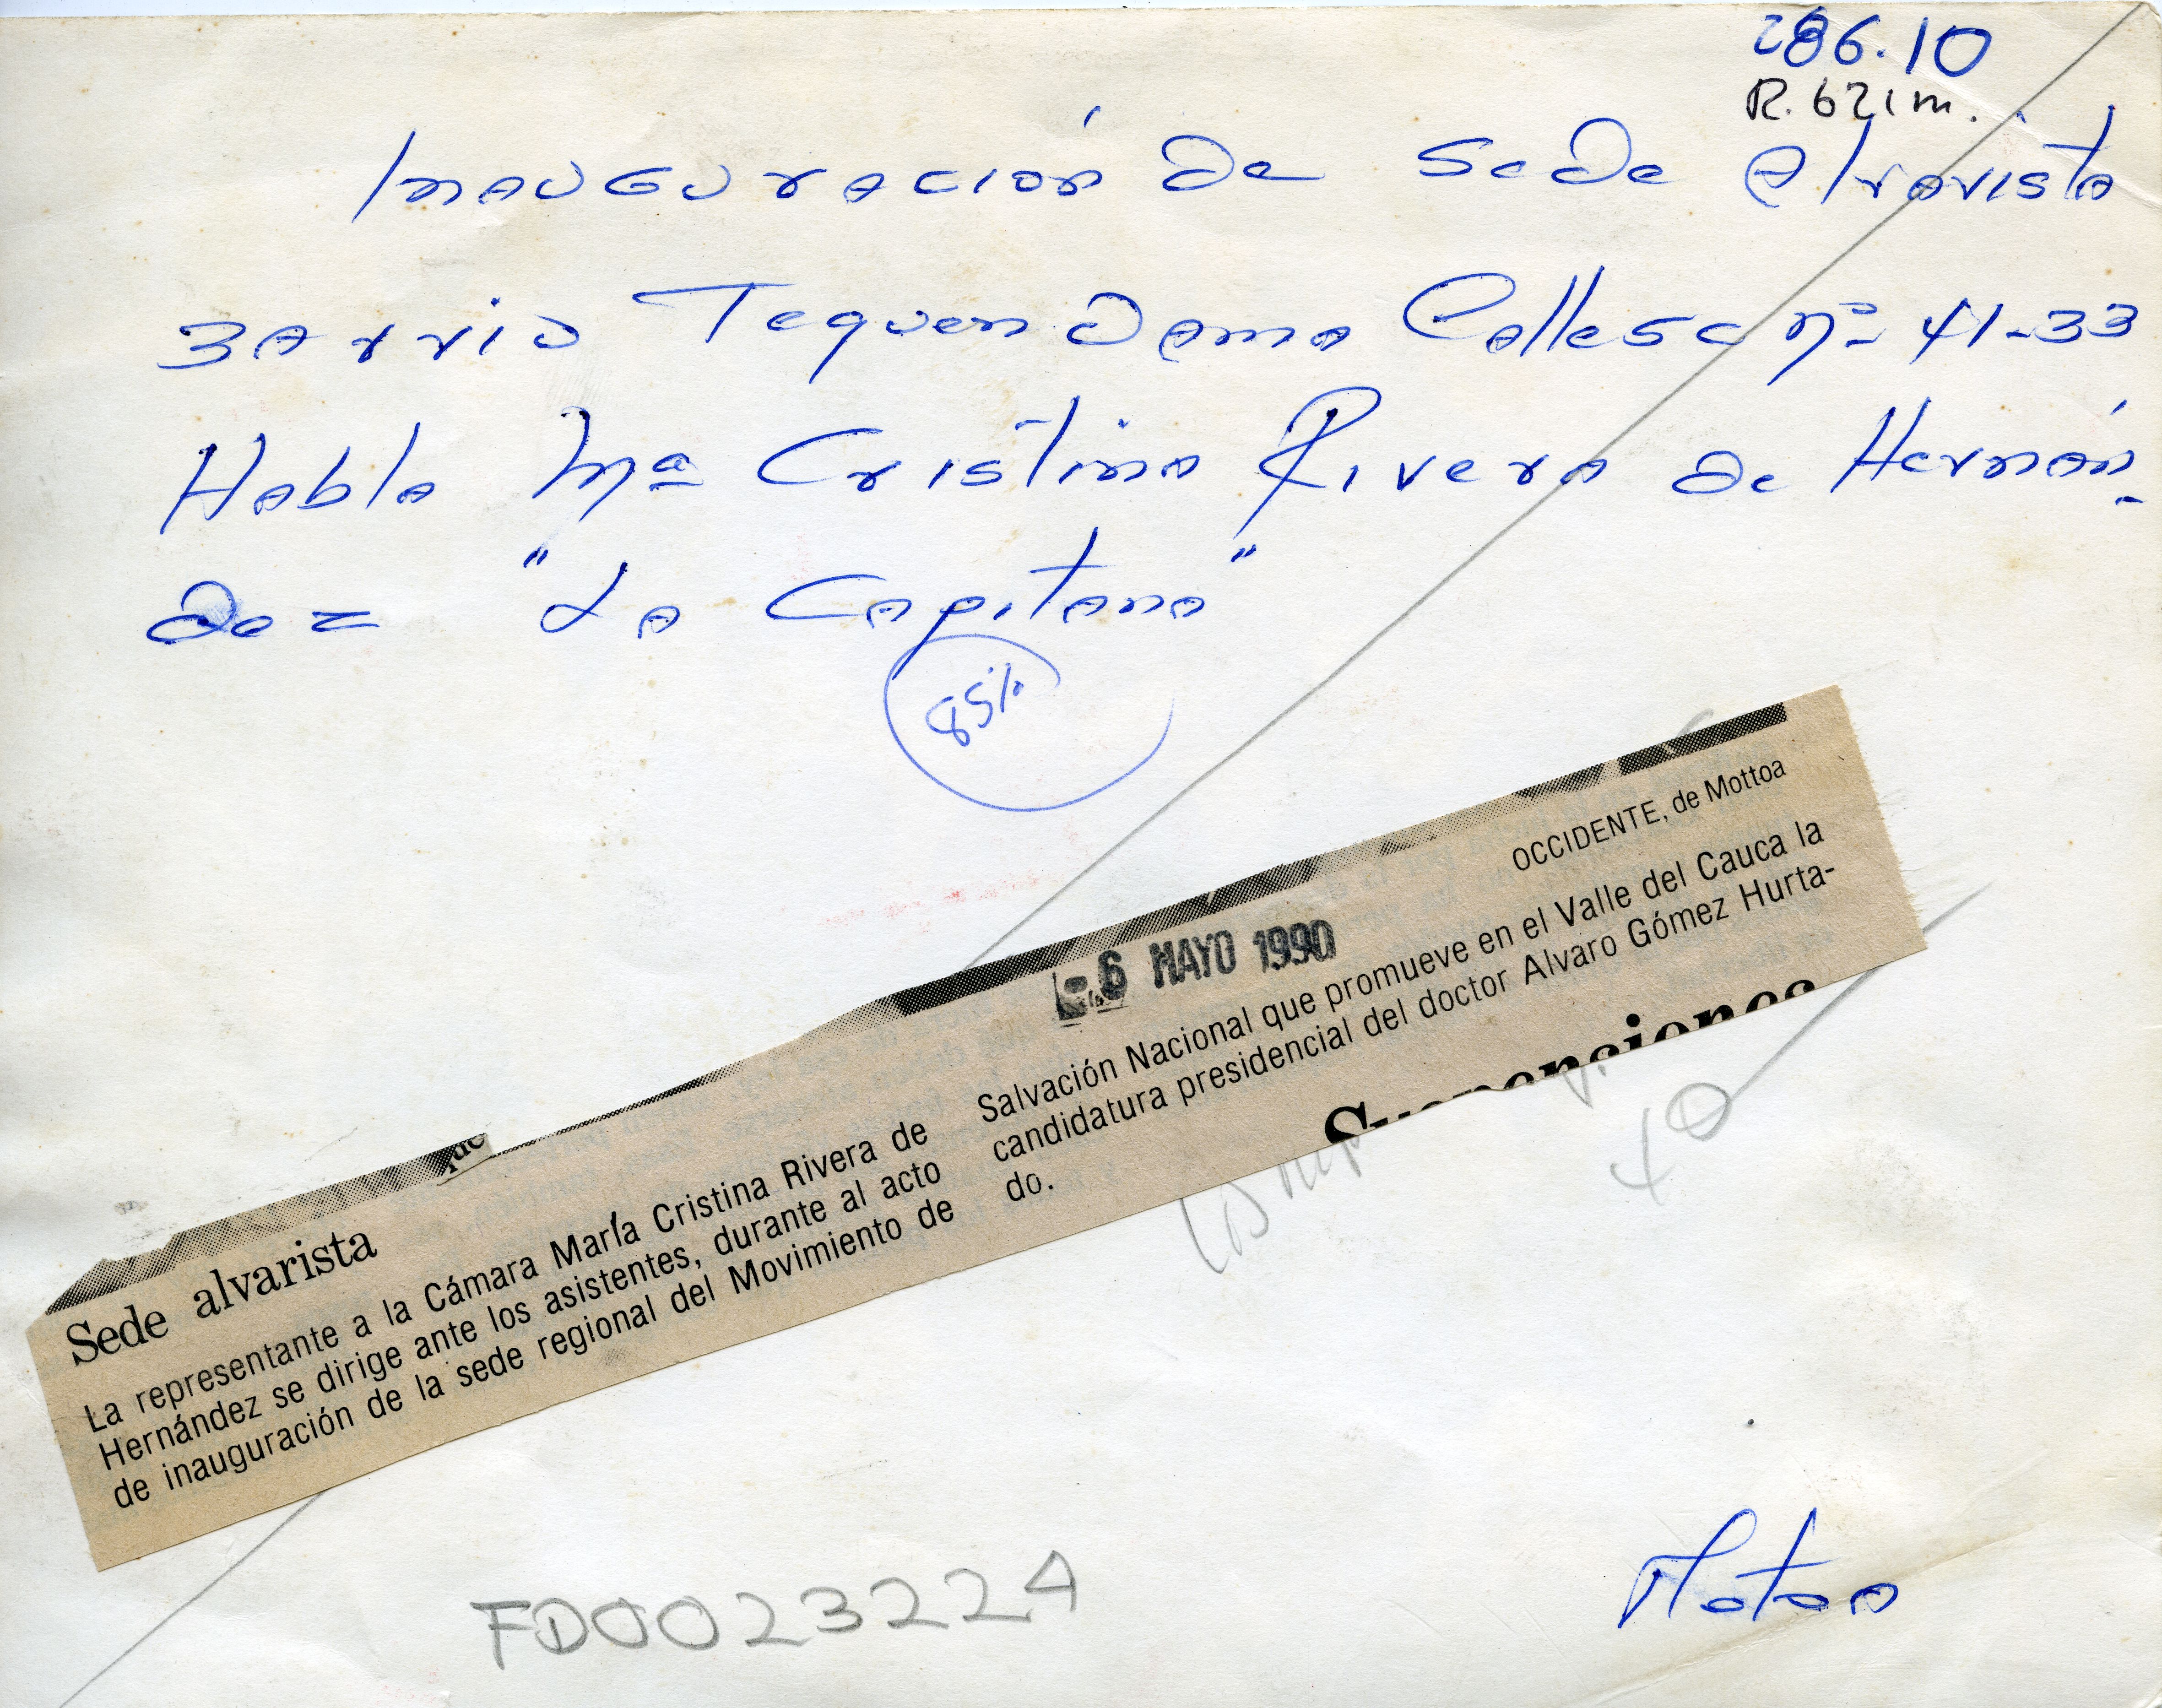 286.10
R.621m.
Inauguración de sede alvarista
Barrio Tequendama Calle 5c Nº 41-33
Habla Mª Cristina Rivera de Hernán-
dez "La Capitana"
85%
OCCIDENTE, de Mottoa
6 MAYO 1990
Sede alvarista
La representante a la Cámara María Cristina Rivera de
Hernández se dirige ante los asistentes, durante al acto
de inauguración de la sede regional del Movimiento de
Salvación Nacional que promueve en el Valle del Cauca la
candidatura presidencial del doctor Alvaro Gómez Hurta-
do.
40
FD0023224
Motoa